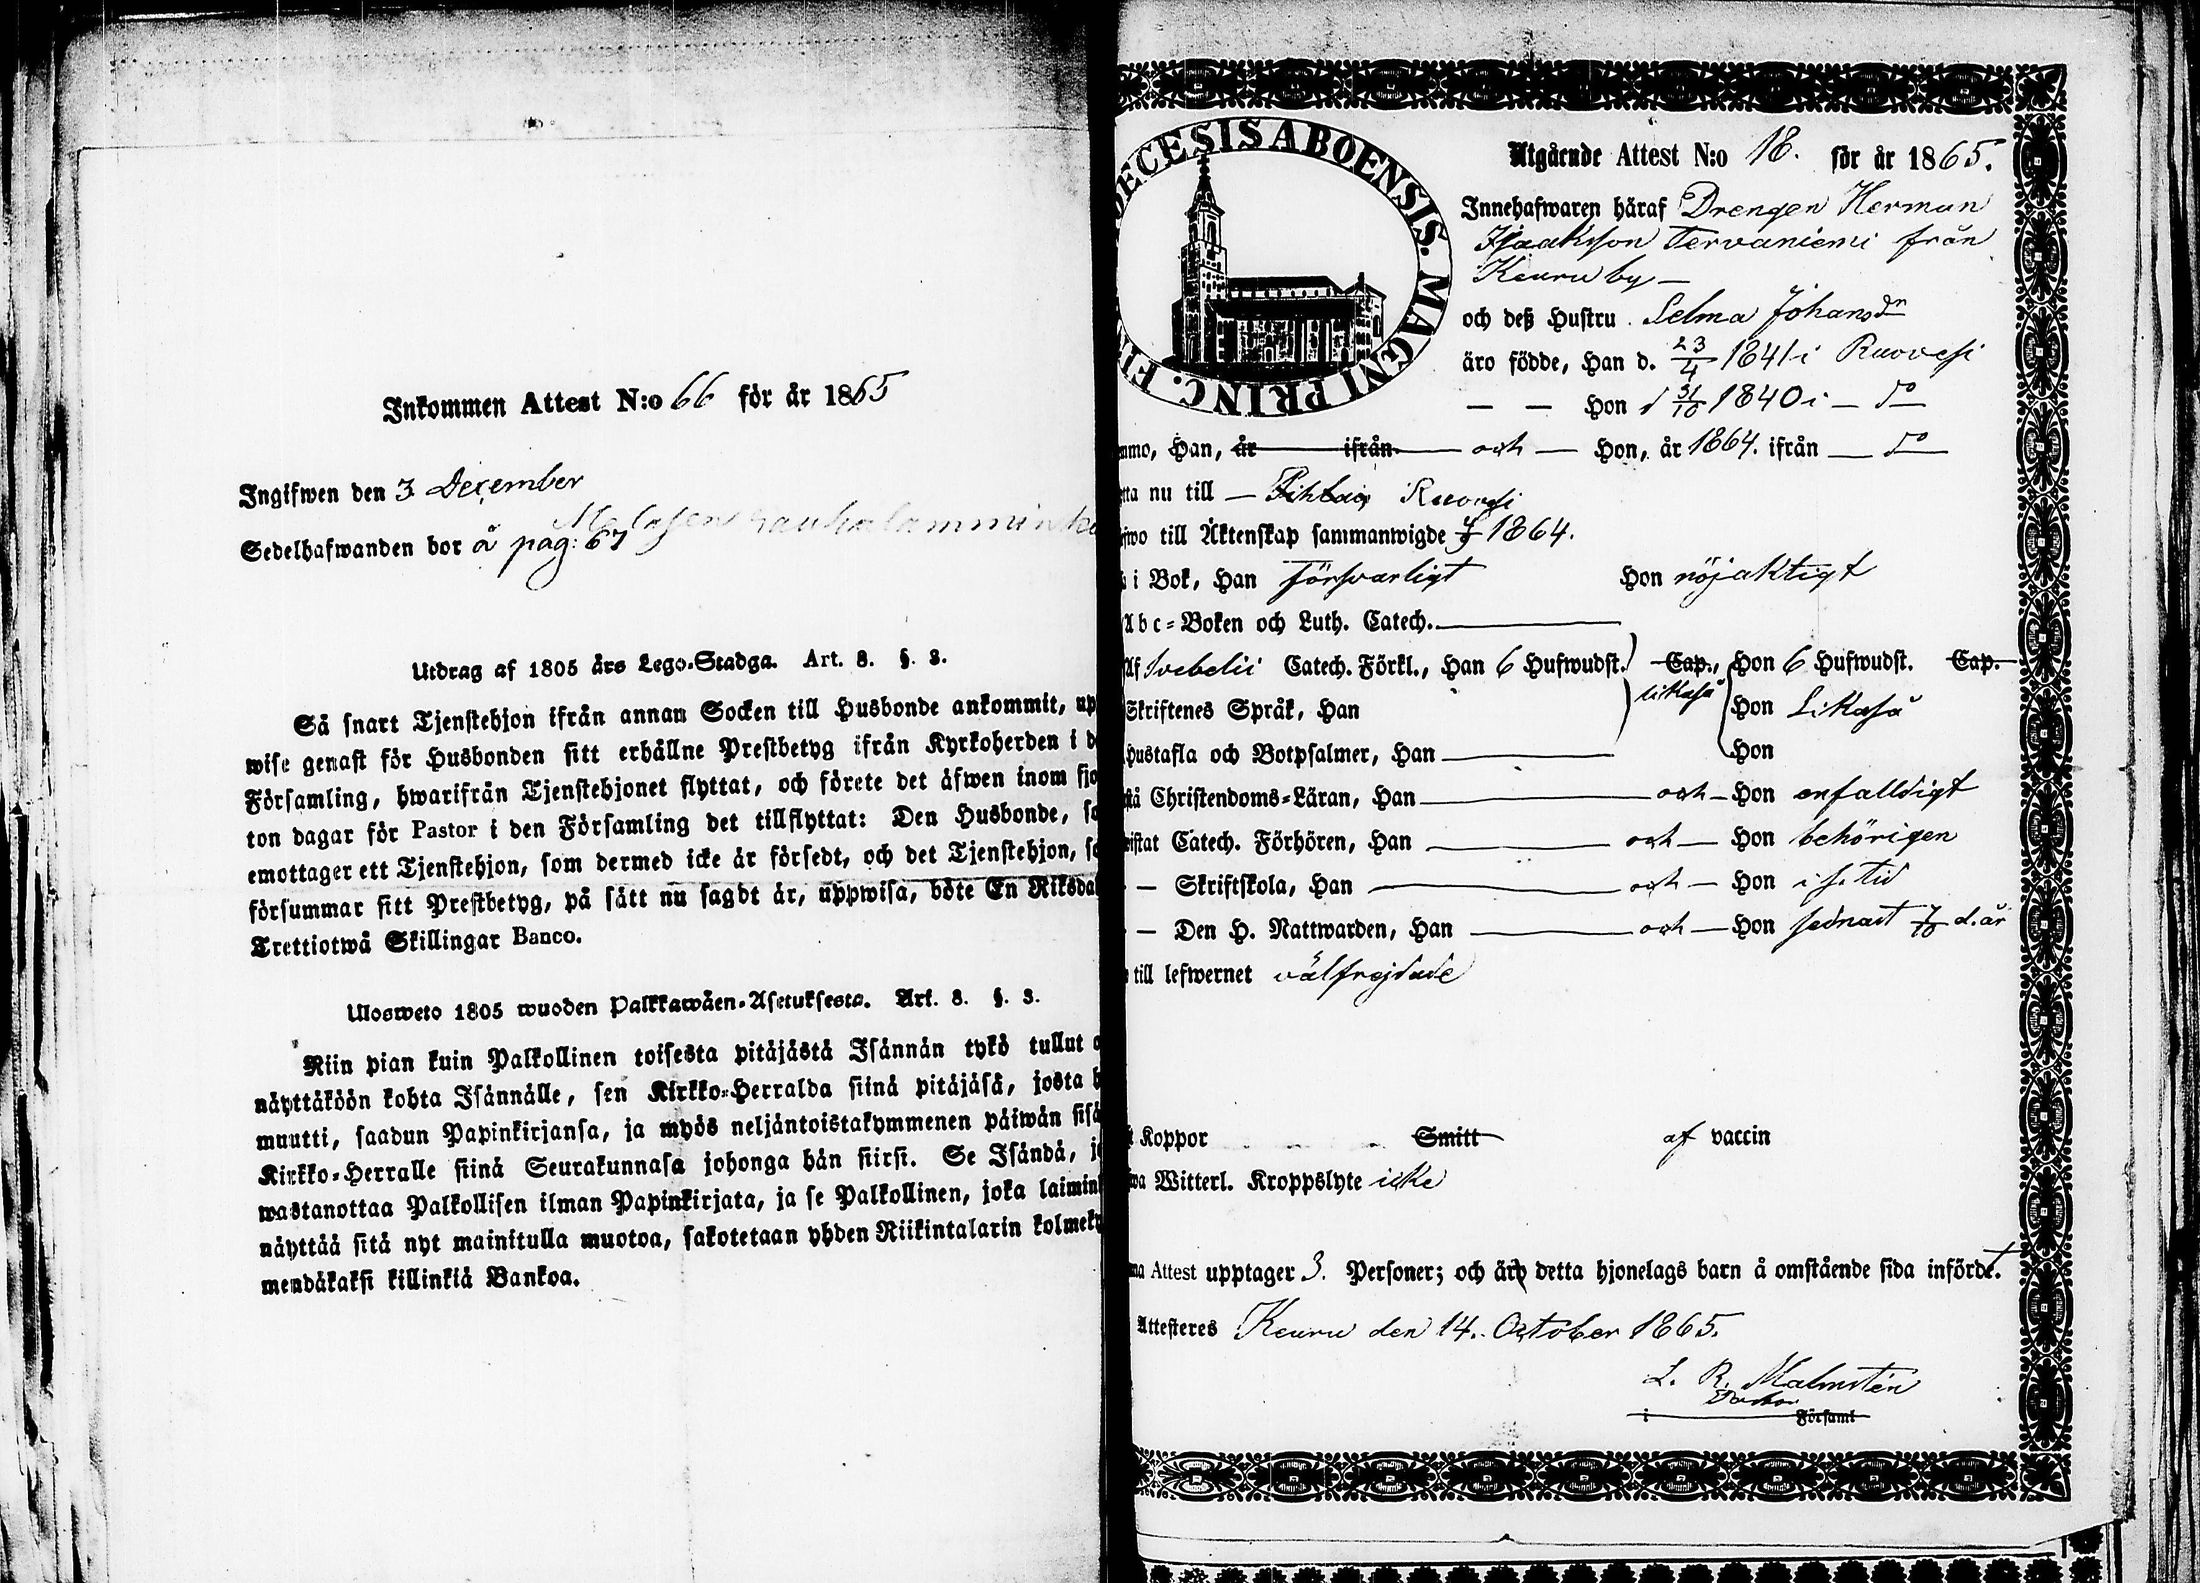 Inkommen Attest N:o 66 för år 1865
Ingifwen den 3 December
Sedelhafwanden bor å pag: 67
Utdrag af 1805 års Lego-Stadga. Art. 8. §. 3.
Så snart Tjenstehjon ifrån annan Socken till Husbonde ankommit, up
wise genast för Husbonden sitt erhållne Prestbetyg ifrån Kyrkoherden i d
Församling, hwarifrån Tjenstehjonet flyttat, och förete det äfwen inom fjo
ton dagar för Pastor i den Församling det tillflyttat: Den Husbonde, so
emottager ett Tjenstehjon, som dermed icke är försedt, och det Tjenstehjon, so
försummar sitt Prestbetyg, på sätt nu sagdt är, uppwisa, böte En Riksda
Trettiotwå Skillingar Banco.
Ulosweto 1805 wuoden Palkkawäen-Asetuksesta. Art. 8. §. 3.
Niin pian kuin Palkollinen toisesta pitäjästä Isännän tykö tullut o
näyttäköön kohta Isännälle, sen Kirkko-Herralda siinä pitäjäsä, josta h
muutti, saadun Papinkirjansa, ja myös neljäntoistakymmenen päiwän sisä
Kirkko-Herralle siinä Seurakunnasa johonga hän siirsi. Se Isändä, jo
wastanottaa Palkollisen ilman Papinkirjata, ja se Palkollinen, joka laimin
näyttää sitä nyt mainitulla muotoa, sakotetaan yhden Riikintalarin kolmeky
mendäkaksi killinkiä Bankoa.
ŒCESIS ABOENSIS. MAGNI PRINC. FI
Utgående Attest N:o 18. för år 1865.
Innehafwaren häraf Drengen Herman
Isaaksson Tervaniemi från
Keuru by —
och deß Hustru Selma Johansdr
äro födde, Han d. 23/4 1841 i Ruovesi
— — Hon d 31/10 1840 i — do
mmo, Han, år ifrån och — Hon, år 1864. ifrån — do
tta nu till — Ruovesi
fwo till Äktenskap sammanwigde 1864.
i Bok, Han försvarligt Hon nöjaktigt
Abc-Boken och Luth. Catech.
Af Svebelii Catech. Förkl., Han 6 Hufwudst. Cap., Hon 6 Hufwudst. Cap.
Skriftenes Språk, Han likaså Hon Likaså
Hustafla och Botpsalmer, Han Hon
stå Christendoms-Läran, Han och — Hon enfalldigt
wistat Catech. Förhören, Han och — Hon behörigen
— Skriftskola, Han och — Hon i s. tid
— Den H. Nattwarden, Han och — Hon sednast 1/10 d. år
till lefwernet välfrejdade
Koppor Smitt af vaccin
wa Witterl. Kroppslyte icke
ma Attest upptager 3. Personer; och äro detta hjonelags barn å omstående sida infördt.
Attesteres Keuru den 14. October 1865.
L. R. Malmstén
Pastor
i Församl